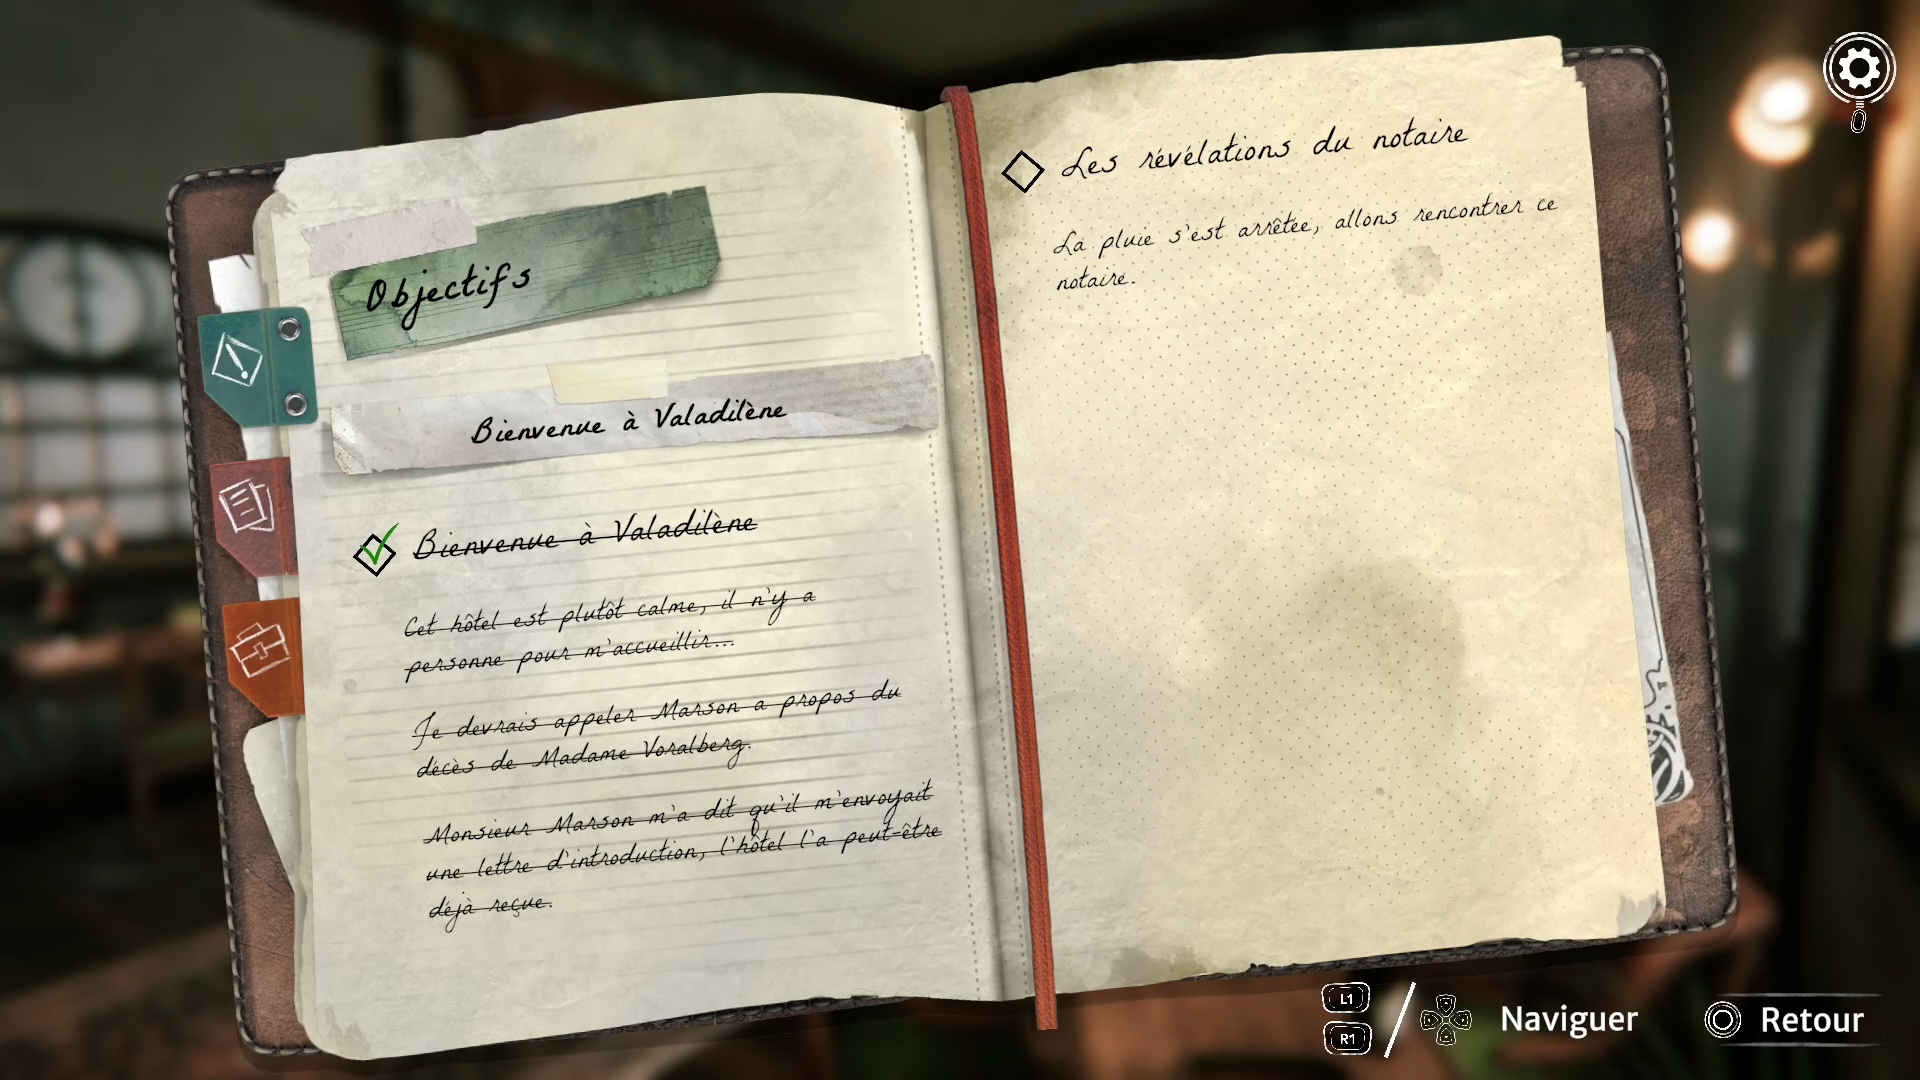 Objectifs
Bienvenue à Valadilène
Bienvenue à Valadilène
Cet hôtel est plutôt calme, il n'y a
personne pour m'accueillir...
Je devrais appeler Marson a propos du
décès de Madame Voralberg.
Monsieur Marson m'a dit qu'il m'envoyait
une lettre d'introduction, l'hôtel l'a peut-être
déjà reçue.
Les révélations du notaire
La pluie s'est arrêtée, allons rencontrer ce
notaire.
L1
R1
Naviguer
Retour